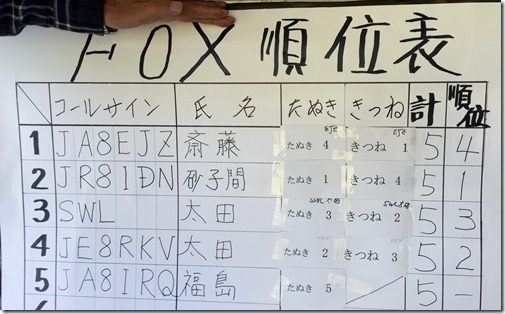 FOX 順位表
コールサイン 氏名 たぬき きつね 計 順位
1 JA8EJZ 斎藤 たぬき 4 きつね 1 5 4
2 JR8IDN 砂子間 たぬき 1 きつね 4 5 1
3 SWL 太田 たぬき 3 きつね 2 5 3
4 JE8RKV 太田 たぬき 2 きつね 3 5 2
5 JA8IRQ 福島 たぬき 5 5 -